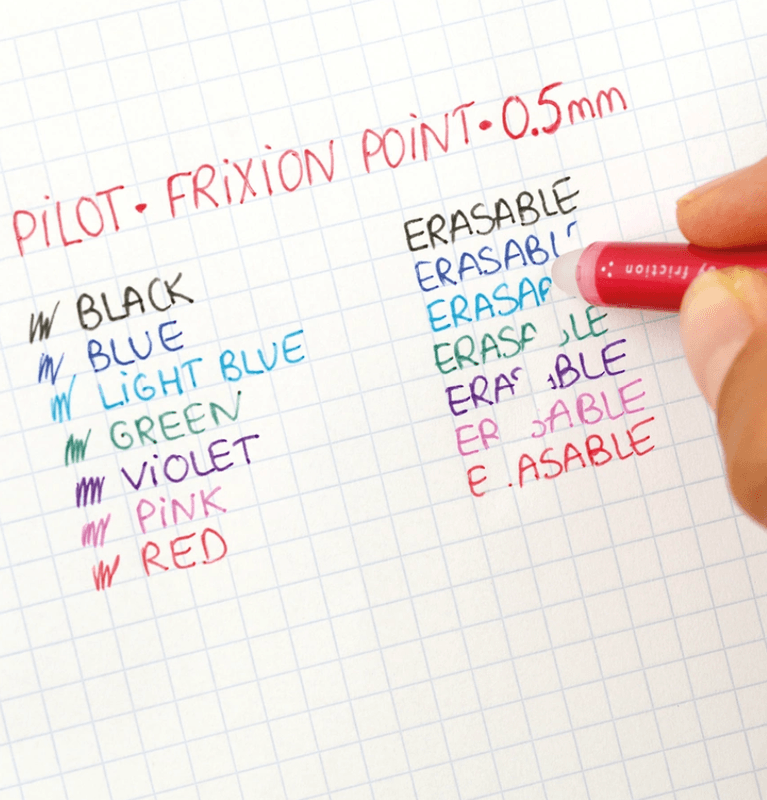 PiLOT • FRiXiON POiNT • 0.5mm
BLACK
BLUE
LiGHT BLUE
GREEN
ViOLET
PiNK
RED
ERASABLE
ERASABL
ERASA
ERASA LE
ERA ABLE
ER SABLE
E ASABLE
by friction